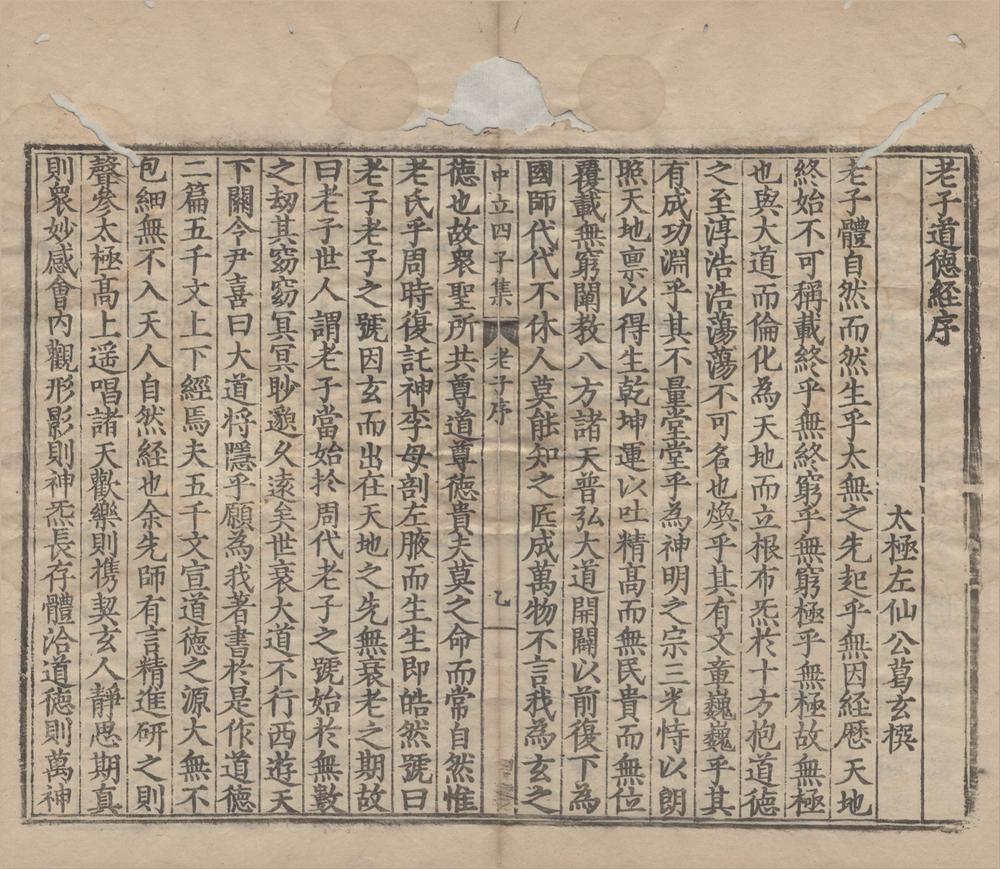 老子道德經序
太極左仙公葛玄撰
老子體自然而然生乎太無之先起乎無因経歷天地
終始不可稱載終乎無終窮乎無窮極乎無極故無極
也與大道而倫化為天地而立根布炁於十方抱道德
之至淳浩浩蕩蕩不可名也煥乎其有文章巍巍乎其
有成功淵乎其不量堂堂乎為神明之宗三光恃以朗
照天地禀以得生乾坤運以吐精髙而無民貴而無位
覆載無窮闡教八方諸天普弘大道開闢以前復下為
國師代代不休人莫能知之匠成萬物不言我為玄之
中立四子集
老子序
乙
德也故衆聖所共尊道尊德貴夫莫之命而常自然惟
老氏乎周時復託神李母剖左腋而生生即皓然號曰
老子老子之號因玄而出在天地之先無衰老之期故
曰老子世人謂老子當始扵周代老子之號始扵無數
之劫其窈窈冥冥眇邈久逺矣世衰大道不行西遊天
下關令尹喜曰大道将隱乎願為我著書於是作道德
二篇五千文上下經焉夫五千文宣道德之源大無不
包細無不入天人自然経也余先師有言精進研之則
聲參太極髙上遥唱諸天歡樂則携契玄人靜思期真
則衆妙感會內觀形影則神炁長存體洽道德則萬神